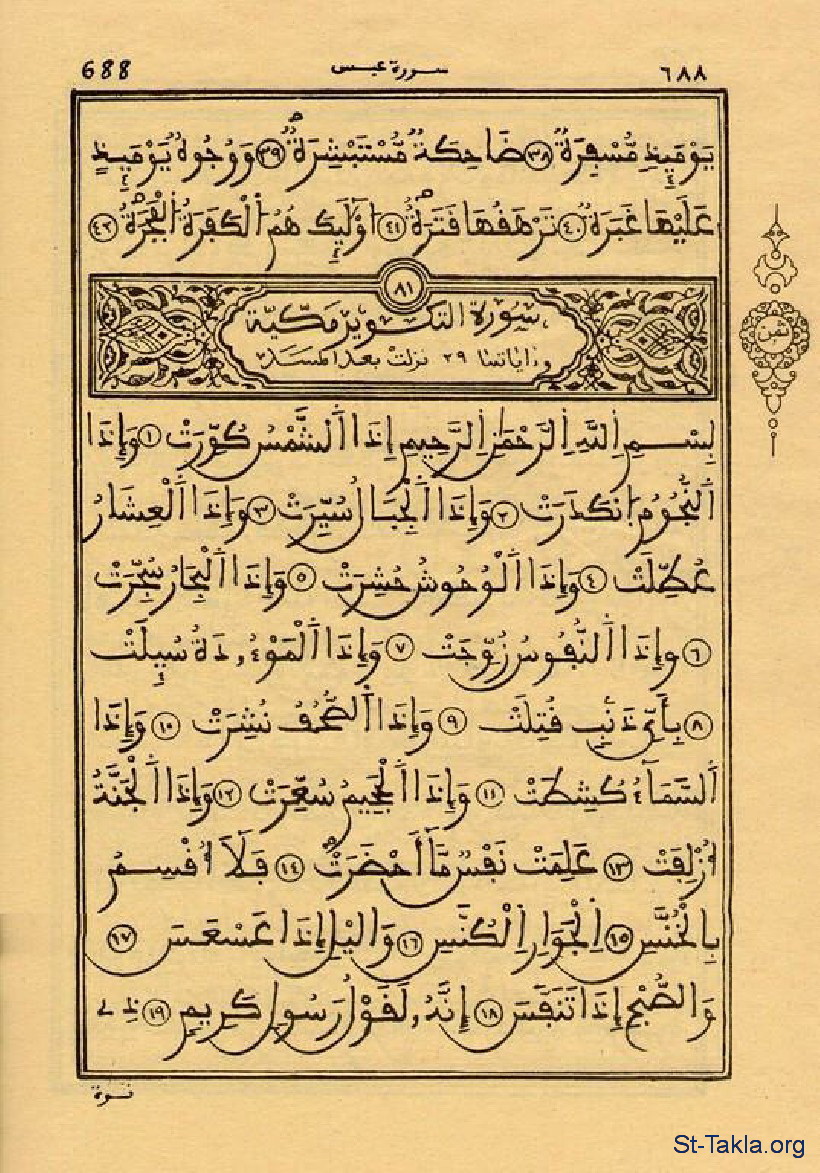 688 سورة عبس ٦٨٨
يَوْمَئِذٍ مُّسْفِرَةٌ ٣٨ ضَاحِكَةٌ مُّسْتَبْشِرَةٌ ٣٩ وَوُجُوهٌ يَوْمَئِذٍ
عَلَيْهَا غَبَرَةٌ ٤٠ تَرْهَقُهَا قَتَرَةٌ ٤١ اُوْلَٰٓئِكَ هُمُ اُلْكَفَرَةُ اُلْفَجَرَةُ ٤٢
٨١
سُورَةُ التكوير مَكِّيَّة
وءاياتها ٢٩ نزلت بعد المسد
ثمن
بِسْمِ اِللَّهِ اِلرَّحْمَٰنِ اِلرَّحِيمِ إِذَا اَلشَّمْسُ كُوِّرَتْ ١ وَإِذَا
اَلنُّجُومُ اُنكَدَرَتْ ٢ وَإِذَا اَلْجِبَالُ سُيِّرَتْ ٣ وَإِذَا اَلْعِشَارُ
عُطِّلَتْ ٤ وَإِذَا اَلْوُحُوشُ حُشِرَتْ ٥ وَإِذَا اَلْبِحَارُ سُجِّرَتْ
٦ وَإِذَا اَلنُّفُوسُ زُوِّجَتْ ٧ وَإِذَا اَلْمَوْءُۥدَةُ سُئِلَتْ
٨ بِأَيِّ ذَنۢبٍ قُتِلَتْ ٩ وَإِذَا اَلصُّحُفُ نُشِرَتْ ١٠ وَإِذَا
اَلسَّمَآءُ كُشِطَتْ ١١ وَإِذَا اَلْجَحِيمُ سُعِّرَتْ ١٢ وَإِذَا اَلْجَنَّةُ
أُزْلِفَتْ ١٣ عَلِمَتْ نَفْسٌ مَّا أَحْضَرَتْ ١٤ فَلَآ أُقْسِمُ
بِالْخُنَّسِ ١٥ اِلْجَوَارِ اِلْكُنَّسِ ١٦ وَاليْلِ إِذَا عَسْعَسَ ١٧
وَالصُّبْحِ إِذَا تَنَفَّسَ ١٨ إِنَّهُۥ لَقَوْلُ رَسُولٍ كَرِيمٍ ١٩ ذِے
قوة
St-Takla.org